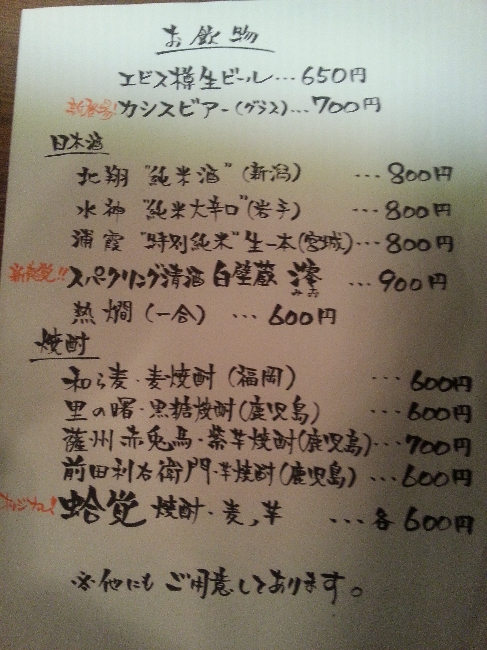 お飲物
エビス樽生ビール…650円
新登場!カシスビアー(グラス)…700円
日本酒
北翔 "純米酒" (新潟) …800円
水神 "純米大辛口"(岩手) …800円
浦霞 "特別純米"生一本(宮城)…800円
新発売!!スパークリング清酒 白壁蔵 澪 みお …900円
熱燗(一合) …600円
焼酎
和ら麦・麦焼酎(福岡) …600円
里の曙・黒糖焼酎(鹿児島) …600円
薩州 赤兎馬・紫芋焼酎(鹿児島)…700円
前田利右衛門・芋焼酎(鹿児島)…600円
オリジナル!蛤覚 焼酎・麦、芋 …各600円
※他にもご用意してあります。